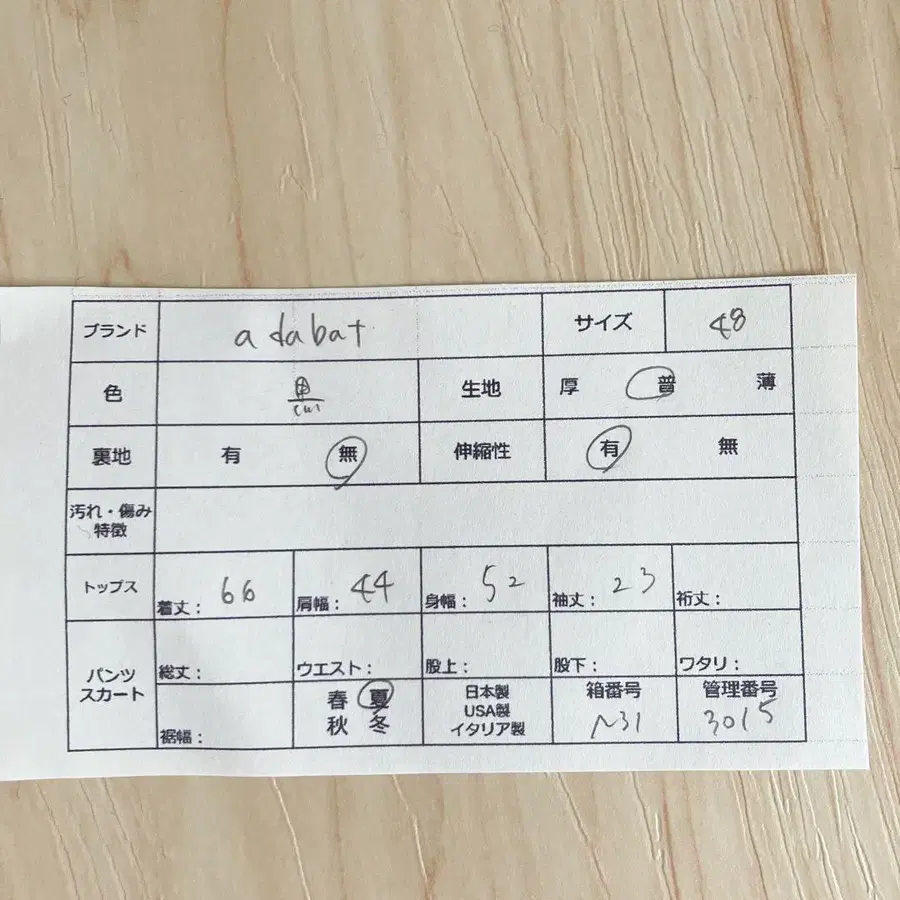 ブランド adabat サイズ 48
色 黒 生地 厚 普 薄
裏地 有 無 伸縮性 有 無
汚れ・傷み
特徴
トップス 着丈： 66 肩幅： 44 身幅： 52 袖丈： 23 裄丈：
パンツ
スカート
総丈： ウエスト： 股上： 股下： ワタリ：
裾幅：
春 夏
秋 冬
日本製
USA製
イタリア製
箱番号
N31
管理番号
3015